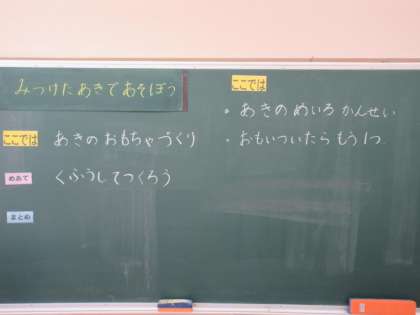 みつけたあきであそぼう
ここでは
あきのおもちゃづくり
めあて
くふうしてつくろう
まとめ
ここでは
・あきのめいろかんせい
・おもいついたらもう1つ